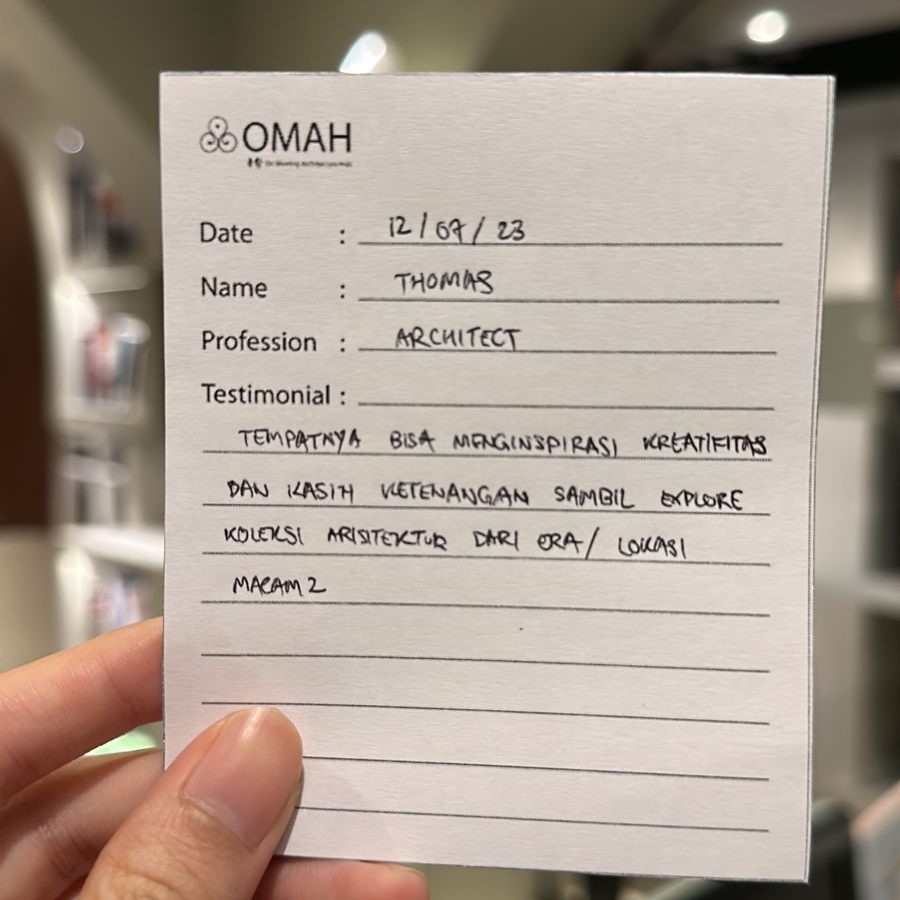 OMAH
Date : 12 / 07 / 23
Name : THOMAS
Profession : ARCHITECT
Testimonial :
TEMPATNYA BISA MENGINSPIRASI KREATIFITAS
DAN KASIH KETENANGAN SAMBIL EXPLORE
KOLEKSI ARISITEKTUR DARI ERA / LOKASI
MACAM2